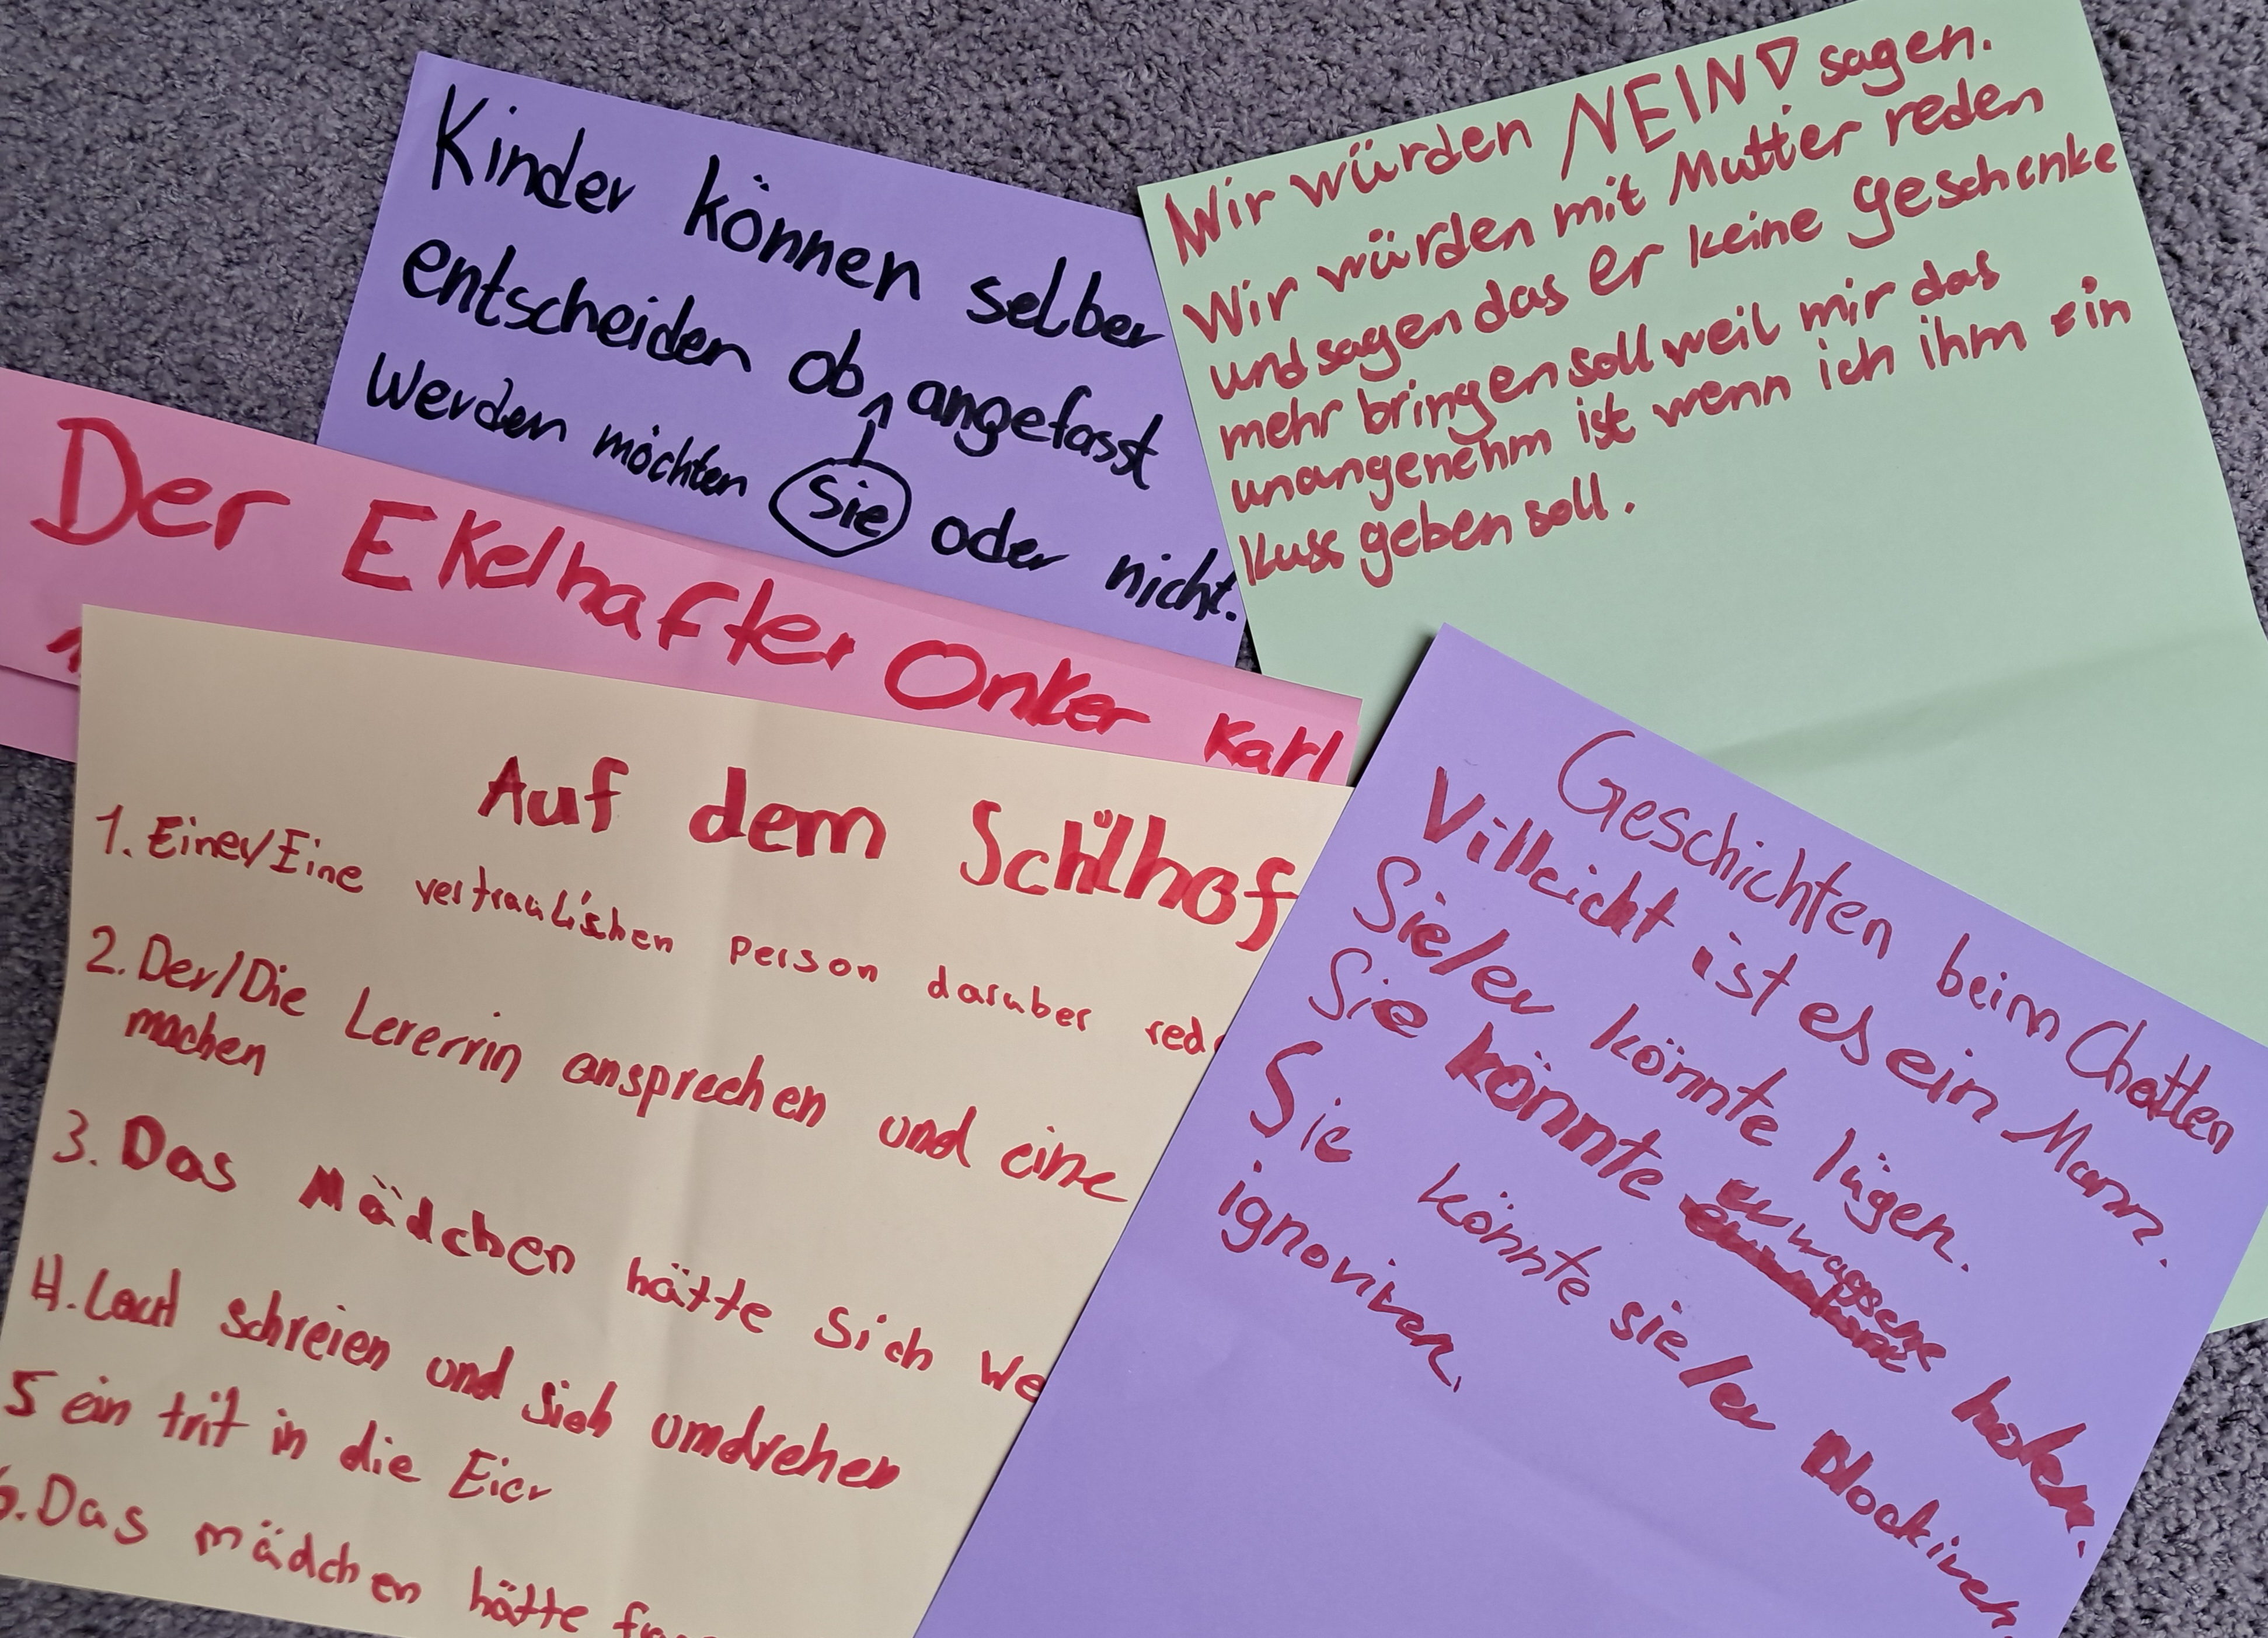 Kinder können selber
entscheiden ob angefasst
werden möchten sie oder nicht.
Wir würden NEIN sagen.
Wir würden mit Mutter reden
und sagen das er keine geschenke
mehr bringen soll weil mir das
unangenehm ist wenn ich ihm ein
kuss geben soll.
Der Ekelhafter Onker Karl
Auf dem Schülhof
1. Einer/Eine vertraulischen person daruber
2. Der/Die Lererrin ansprechen und eine
machen
3. Das Mädchen hätte sich
4. Laut schreien und sich umdrehen
5 ein trit in die Eier
6. Das mädchen hätte
Geschichten beim Chatten
Villeicht ist es ein Mann.
Sie/er könnte lügen.
Sie könnte holen.
Sie könnte sie/er Blockiren
ignoriren.